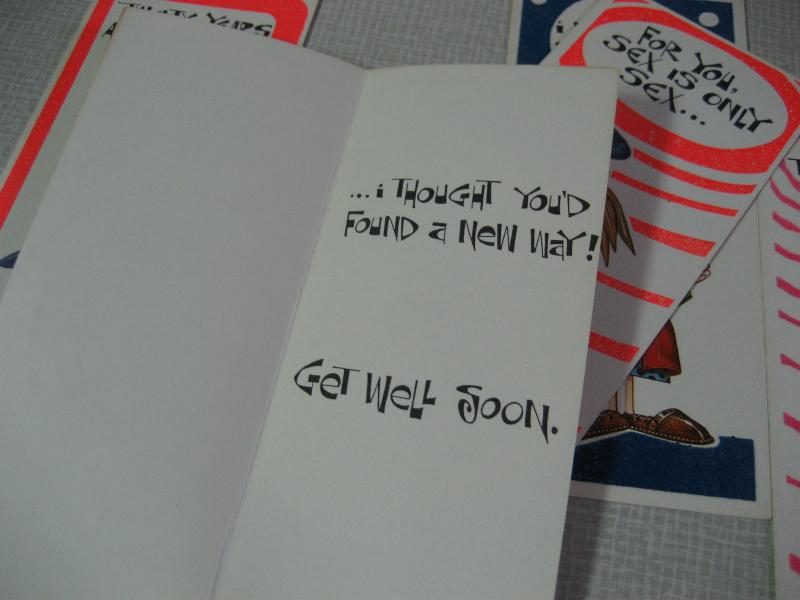 THIRTY YEARS
FOR YOU,
SEX IS ONLY
SEX...
...i THOUGHT YOU'D
FOUND a NEW WaY!
GET WELL SOON.